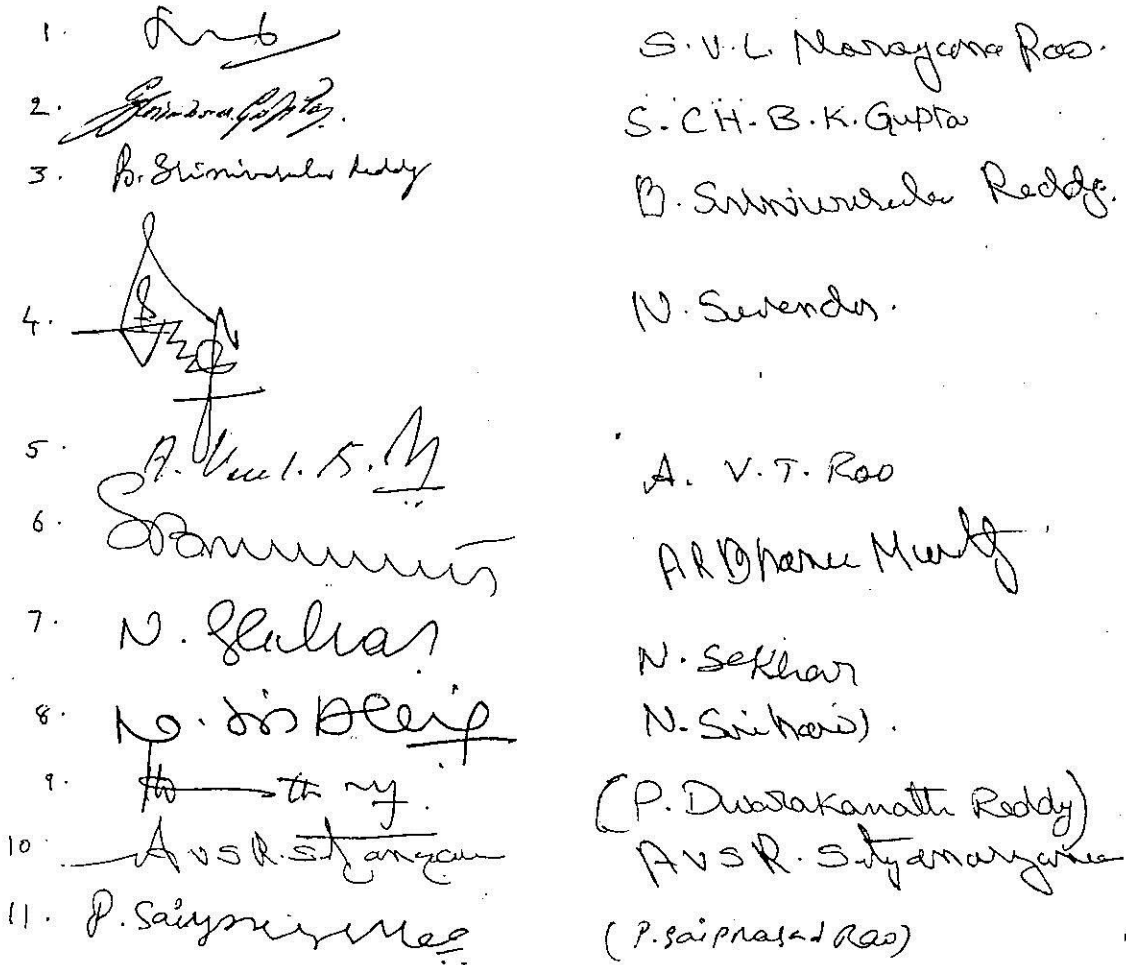 1. S.V.L. Narayana Rao.
2. S.CH.B.K. Gupta
3. B. Srinivasulu Reddy B. Srinivasulu Reddy.
4. N. Surender.
5. A. V.T. Rao
6. A R Bhanu Murthy
7. N. Sekhar N. Sekhar
8. N. Srihari N. Srihari).
9. (P. Dwarakanath Reddy)
10. A V S R. Satyanarayana A V S R. Satyanarayana
11. P. Saiprasad Rao (P. Saiprasad Rao)